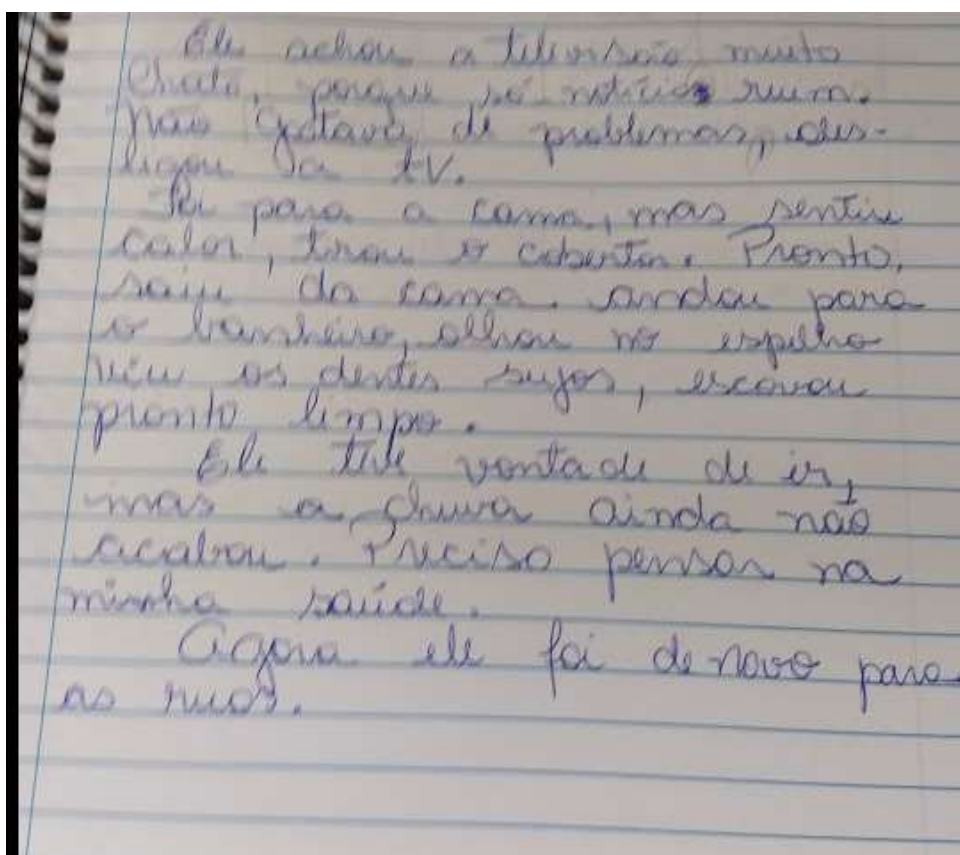 Ele achou a televisão muito
Chato, porque só notícias ruim.
Não gostava de problemas, des-
ligou a tv.
Foi para a cama, mas sentiu
calor, tirou o cobertor. Pronto,
saiu da cama. andou para
o banheiro, olhou no espelho
viu os dentes sujos, escovou
pronto limpo.
Ele teve vontade de ir,
mas a chuva ainda não
acabou. Preciso pensar na
minha saúde.
Agora ele foi de novo para
as ruas.